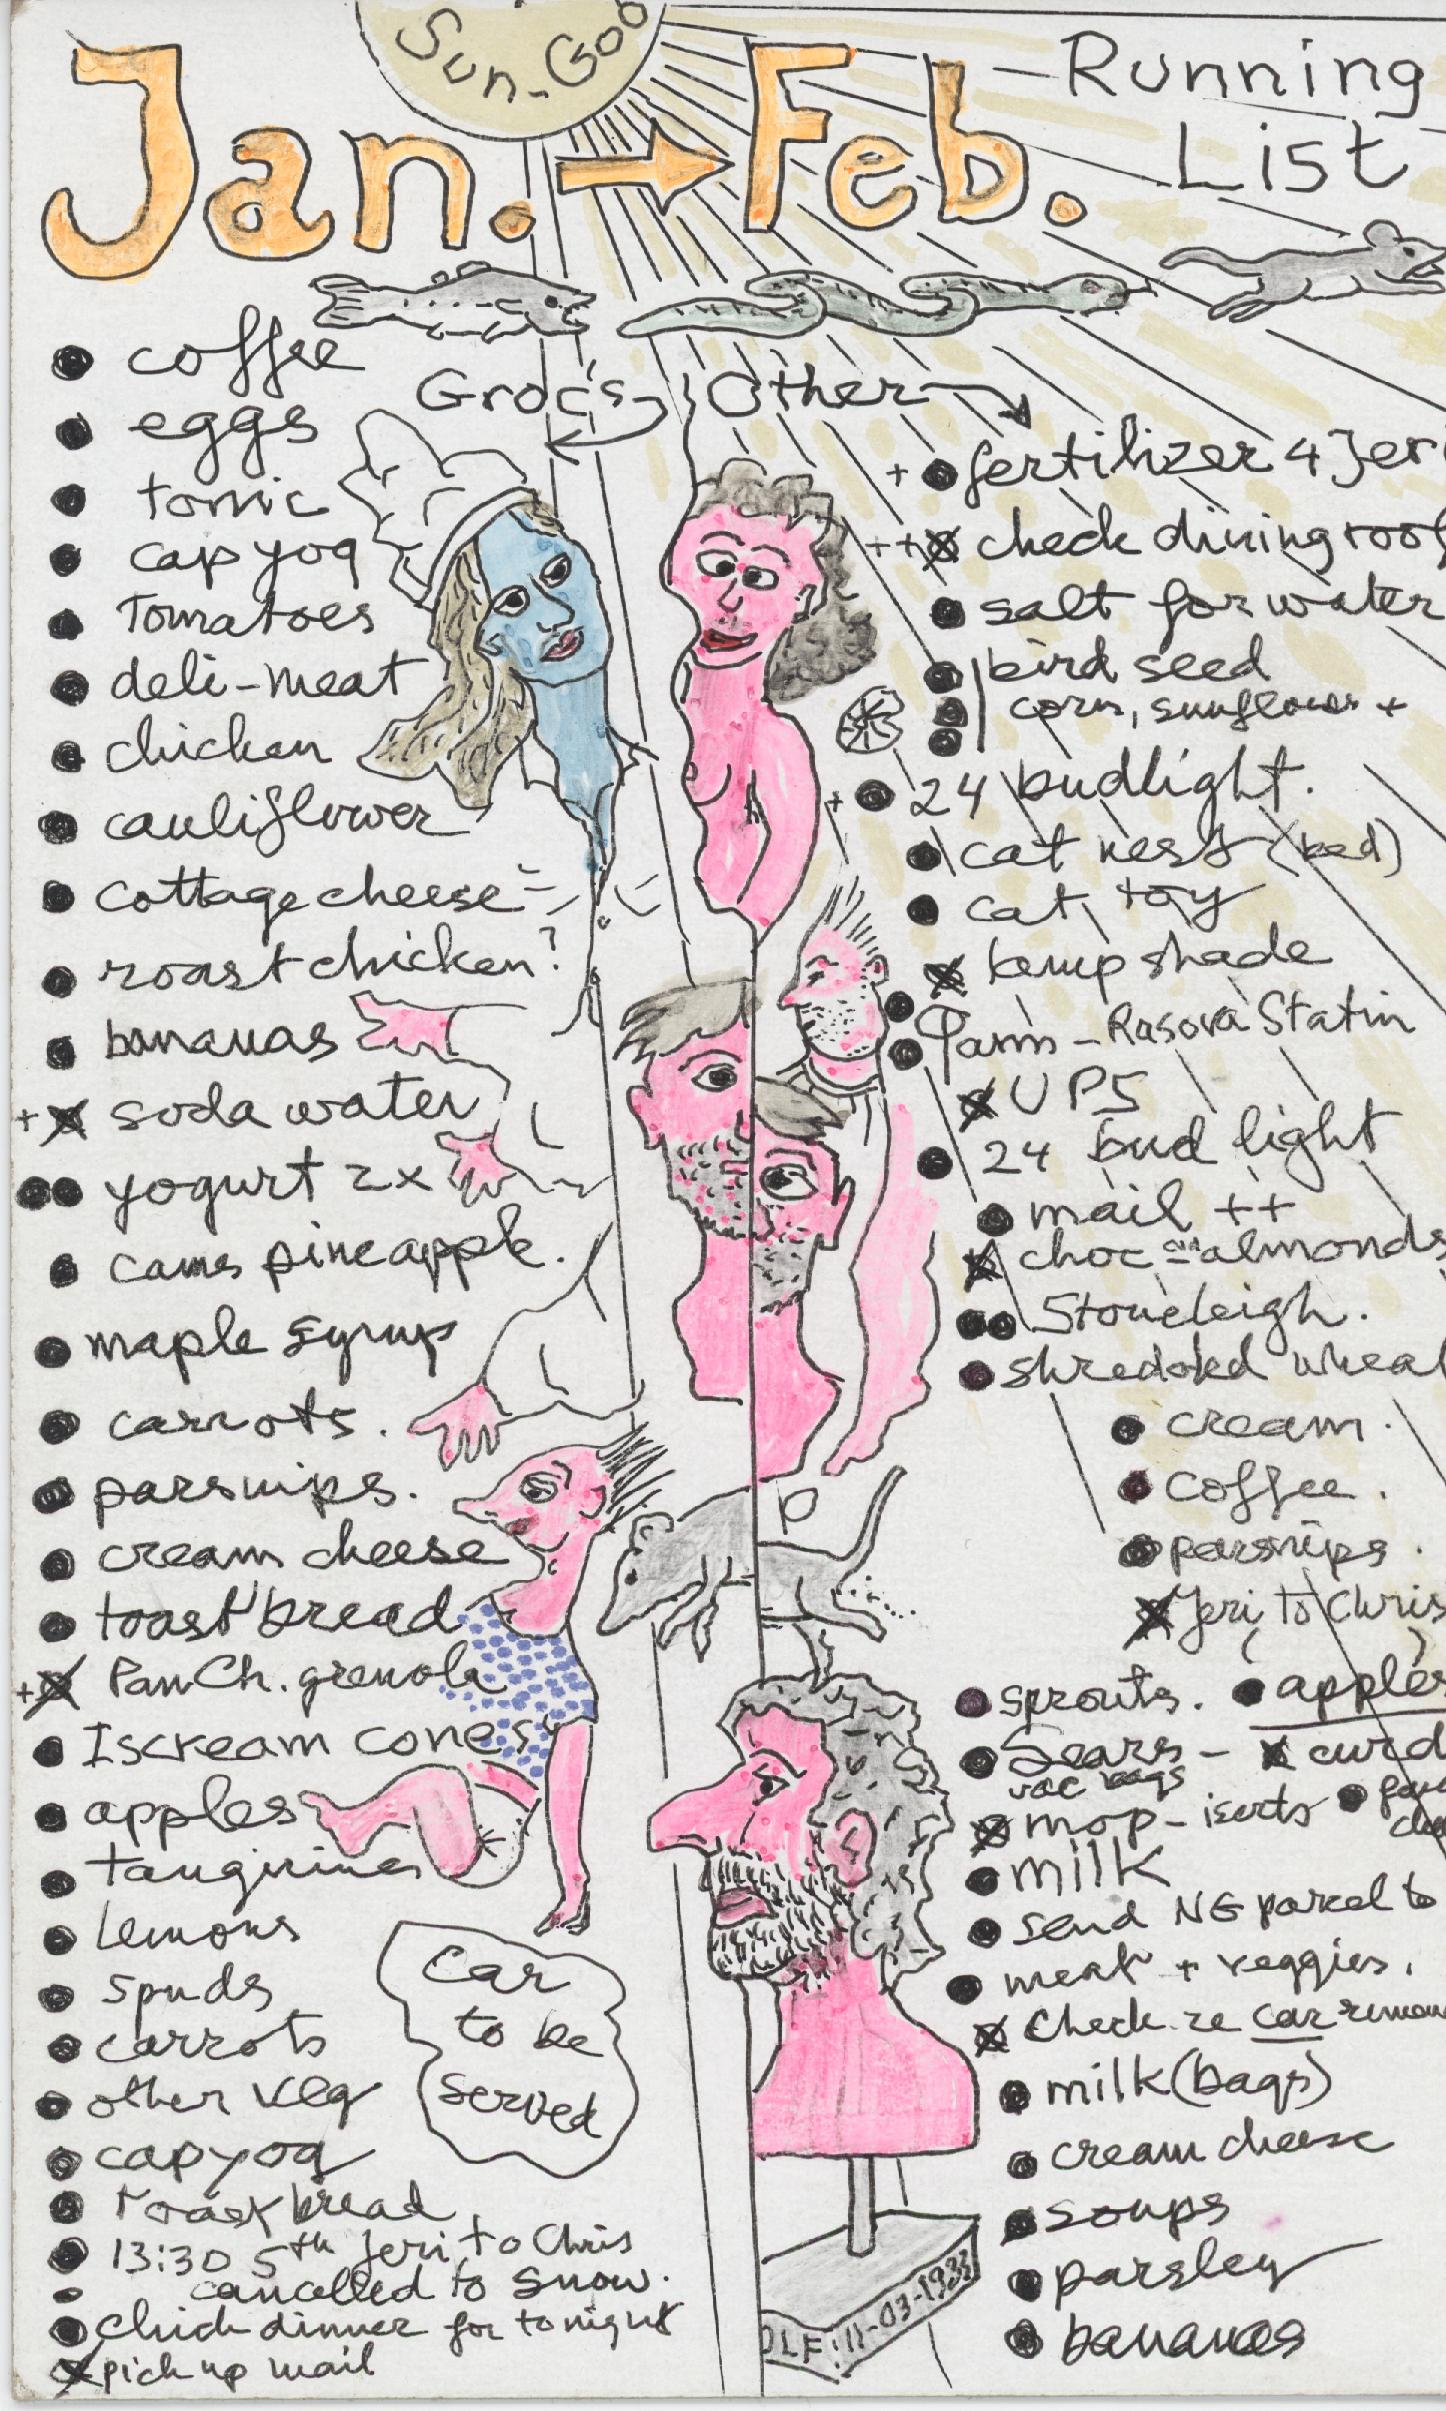 Sun-God
Jan. → Feb.
Running
List
Groc's
Other
coffee
eggs
tonic
cap yog
Tomatoes
deli-meat
chicken
cauliflower
cottage cheese
roast chicken?
bananas
+ soda water
yogurt 2x
pineapple.
maple syrup
carrots.
parsnips.
cream cheese
toast bread
+ Pan Ch. grenola
Iscream cones
apples
tangirines
Lemons
spuds
carrots
other veg
cap yog
Toast bread
13:30 5th Jeri to Chris
cancelled to snow.
chick dinner for tonight
pick up mail
Car
to be
served
+ fertilizer 4 Jeri
++ check dining roof
salt for water
bird seed
corn, sunflower +
+ 24 budlight.
cat nest (bed)
cat toy
shade
- Rasova Statin
UPS
24 bud light
mail ++
choc almonds
Stoneleigh.
shredded wheat
cream.
coffee.
parsnips.
Jeri to Chris
sprouts.
apples
Sears - curd
vac bags
mop-iserts
milk
send NG parcel to
meat + veggies.
check re car
milk (bags)
cream cheese
soups
parsley
bananas
P
OLF! 11-03-1933